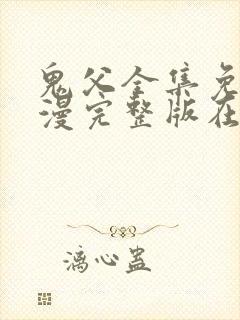 鬼父全集免
漫完整版在
漓心蛊